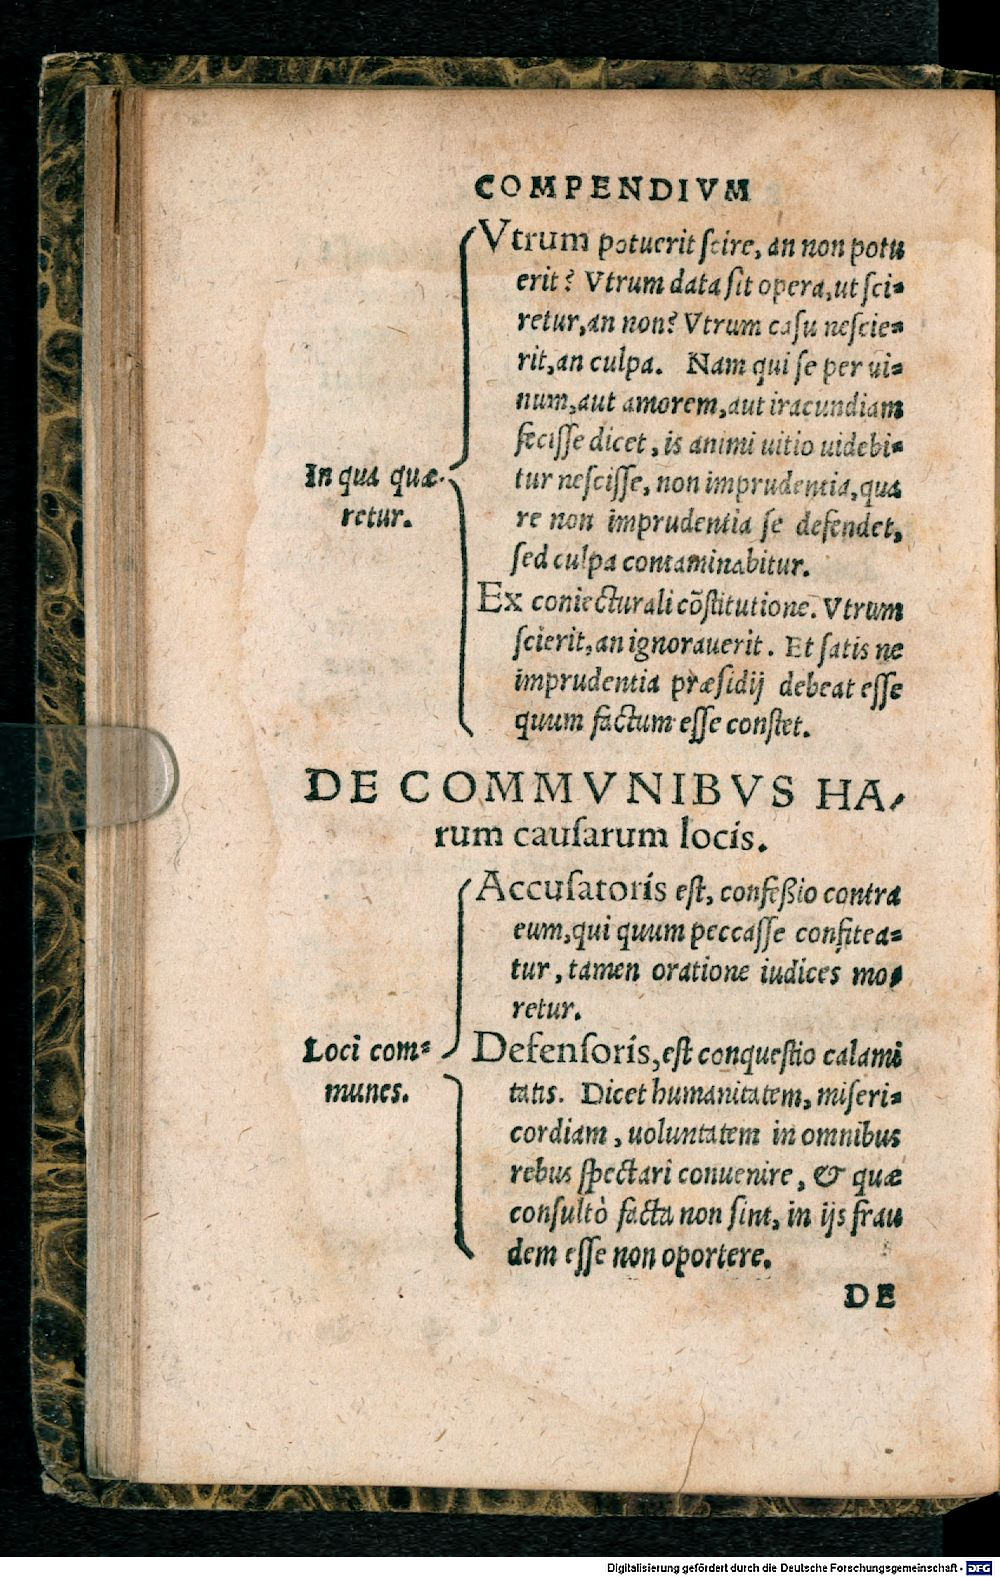 COMPENDIVM
Vtrum potuerit ſcire, an non potu
erit? Vtrum data ſit opera, ut ſci=
retur, an non? Vtrum caſu neſcie=
rit, an culpa. Nam qui ſe per ui=
num, aut amorem, aut iracundiam
feciſſe dicet, is animi uitio uidebi=
tur neſciſſe, non imprudentia, qua
re non imprudentia ſe defendet,
ſed culpa contaminabitur.
In qua quæ-
retur.
Ex coniecturali cõſtitutione. Vtrum
ſcierit, an ignorauerit. Et ſatis ne
imprudentia præſidij debeat eſſe
quum factum eſſe conſtet.
DE COMMVNIBVS HA-
rum cauſarum locis.
Accuſatoris eſt, confeßio contra
eum, qui quum peccaſſe confitea=
tur, tamen oratione iudices mo=
retur.
Loci com=
munes.
Defenſoris, eſt conqueſtio calami
tatis. Dicet humanitatem, miſeri=
cordiam, uoluntatem in omnibus
rebus ſpectari conuenire, & quæ
conſultò facta non ſint, in ijs frau
dem eſſe non oportere.
DE
Digitalisierung gefördert durch die Deutsche Forschungsgemeinschaft - DFG